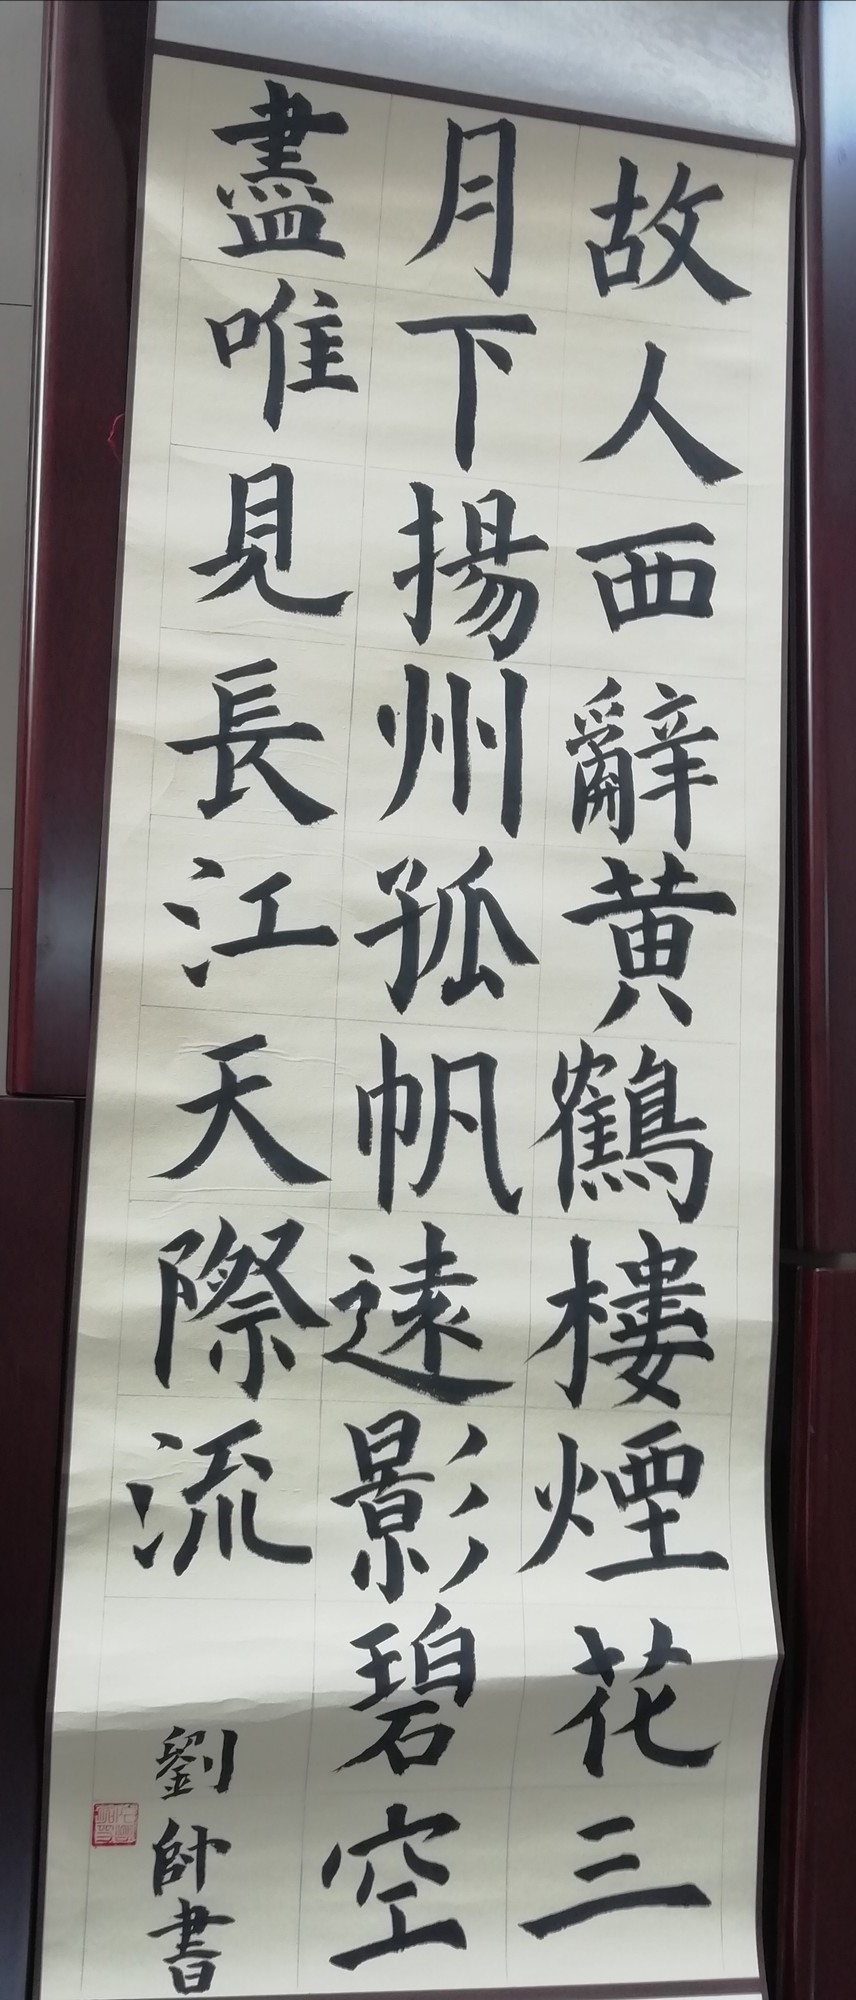 故人西辭黄鶴樓煙花三
月下揚州孤帆遠影碧空
盡唯見長江天際流
劉帥書